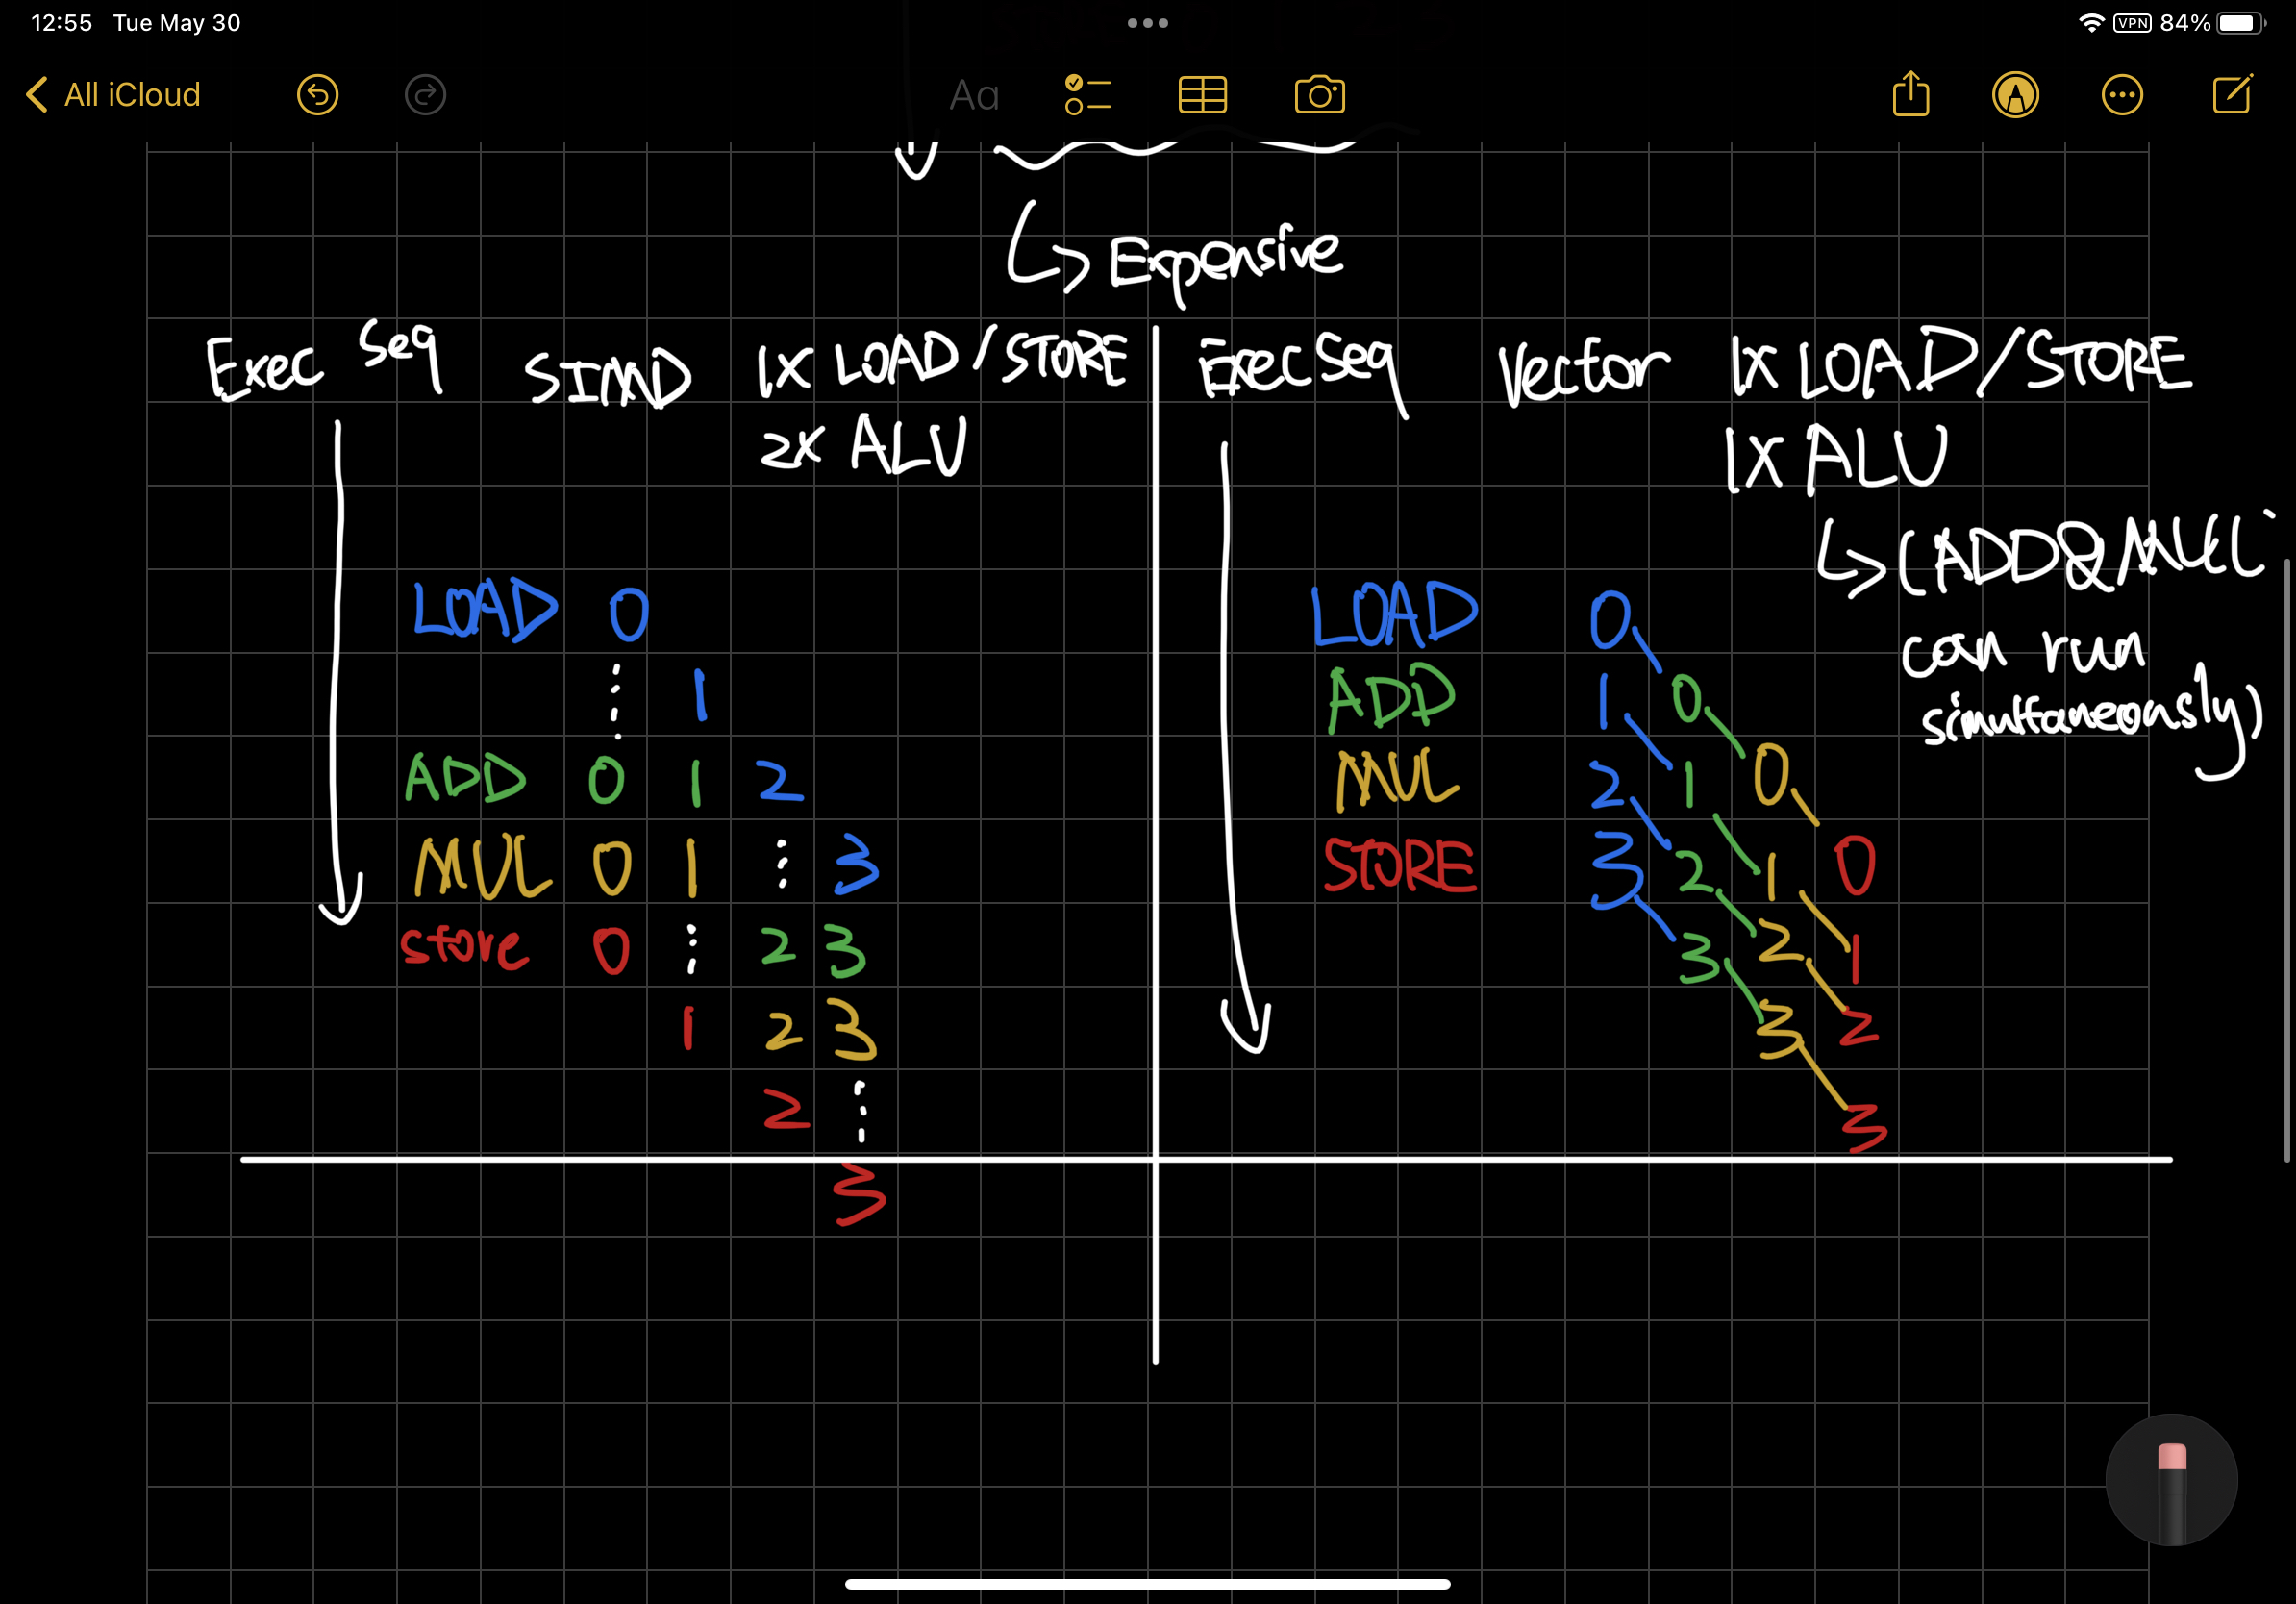 12:55 Tue May 30
VPN 84%
All iCloud
Aa
Expensive
Exec Seq SIMD 1x LOAD/STORE
2x ALU
LOAD 0
1
ADD 0 1 2
MUL 0 1 3
store 0 2 3
1 2 3
2
3
Exec Seq Vector 1x LOAD/STORE
1x ALU
(ADD&MUL
can run
simultaneously)
LOAD 0
ADD 1 0
MUL 2 1 0
STORE 3 2 1 0
3 2 1
3 2
3